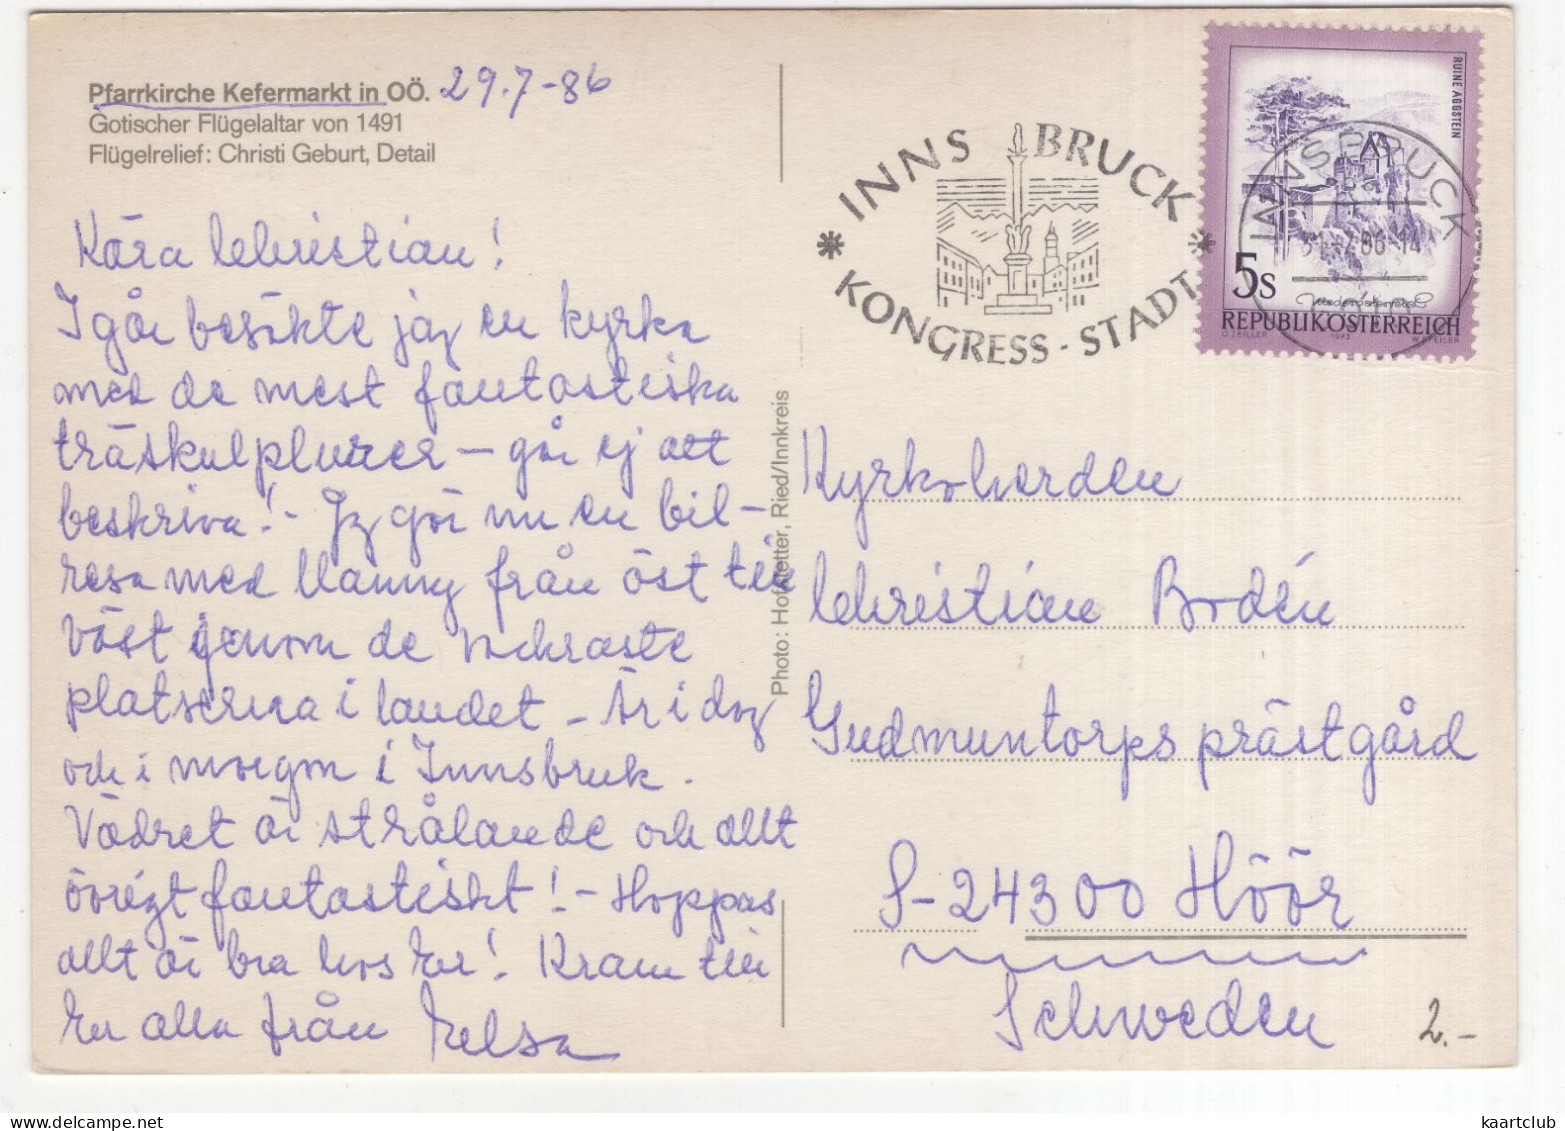 Pfarrkirche Kefermarkt in OÖ. 29.7-86
Gotischer Flügelaltar von 1491
Flügelrelief: Christi Geburt, Detail
Kära Christian!
Igår besökte jag en kyrka
med de mest fantastiska
träskulpturer – går ej att
beskriva! - Jag gör nu en bil-
resa med Nanny från öst till
väst genom de vackraste
platserna i landet – Är idag
och i morgon i Innsbruk.
Vädret är strålande och allt
övrigt fantastiskt! - Hoppas
allt är bra hos Er! Kram till
Er alla från Elsa
Photo: Hofstetter, Ried/Innkreis
INNSBRUCK
KONGRESS-STADT
RUINE AGGSTEIN
INNSBRUCK
31.-7.86-14
5s
Niederösterreich
REPUBLIK ÖSTERREICH
O. ZEILLER 1973 W. PFEILER
Kyrkoherden
Christian Bodén
Gudmuntorps prästgård
S-24300 Höör
Schweden
2.-
kaartclub